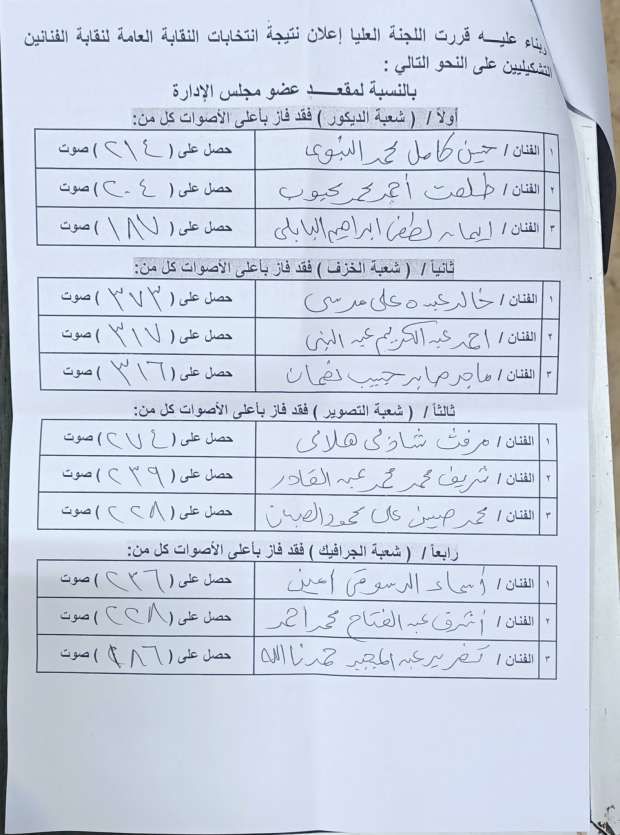 وبناء عليـــه قررت اللجنة العليا إعلان نتيجة انتخابات النقابة العامة لنقابة الفنانين
التشكيليين على النحو التالي :
بالنسبة لمقعـــد عضو مجلس الإدارة
أولاً / ( شعبة الديكور ) فقد فاز بأعلى الأصوات كل من:
١ الفنان / حسين كامل محمد النبوى حصل على ( ٢١٤ ) صوت
٢ الفنان / طلعت أحمد محمد محبوب حصل على ( ٢٠٤ ) صوت
٣ الفنان / إيمان لطفى ابراهيم البابلى حصل على ( ١٨٧ ) صوت
ثانياً / ( شعبة الخزف ) فقد فاز بأعلى الأصوات كل من:
١ الفنان / خالد عبده على مرسى حصل على ( ٣٧٣ ) صوت
٢ الفنان / احمد عبد الكريم عبد النبى حصل على ( ٣١٧ ) صوت
٣ الفنان / ماجد صابر حبيب حصل على ( ٣١٦ ) صوت
ثالثاً / ( شعبة التصوير ) فقد فاز بأعلى الأصوات كل من:
١ الفنان / مرفت شاذلى هلالى حصل على ( ٢٧٤ ) صوت
٢ الفنان / شريف محمد محمد عبد القادر حصل على ( ٢٣٩ ) صوت
٣ الفنان / محمد حسين على محمود الصبان حصل على ( ٢٢٨ ) صوت
رابعاً / ( شعبة الجرافيك ) فقد فاز بأعلى الأصوات كل من:
١ الفنان / أسماء الدسوقى أمين حصل على ( ٢٣٦ ) صوت
٢ الفنان / أشرف عبد الفتاح محمد احمد حصل على ( ٢٢٨ ) صوت
٣ الفنان / عبد المجيد حمدنا الله حصل على ( ١٨٦ ) صوت